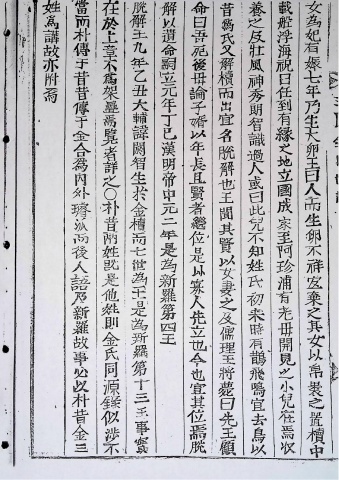 女爲妃有娠七年乃生大卵王曰人而生卵不祥宜棄之其女以帛裹之置櫝中
載船浮海祝曰任到有緣之地立國成家至阿珍浦有老母開見之小兒在焉收
養之及壯風神秀朗智識過人或曰此兒不知姓氏初來時有鵲飛鳴宜去鳥以
昔爲氏又解櫝而出宜名脫解也王聞其賢以女妻之及儒理王將薨曰先王顧
命曰吾死後毋論子婿以年長且賢者繼位是以寡人先立也今也宜其位焉脫
解以遺命嗣立元年丁巳漢明帝中元二年是爲新羅第四王
脫解王九年乙丑大輔諱閼智生於金櫝而七世爲王是爲新羅第十三王事實
在於上章不爲架疊爲覽者詳之○朴昔兩姓旣是他姓則金氏同源錄似涉不
當而朴傳于昔昔傳于金合爲內外璿派而後人語及新羅故事必以朴昔金三
姓爲講故亦附焉